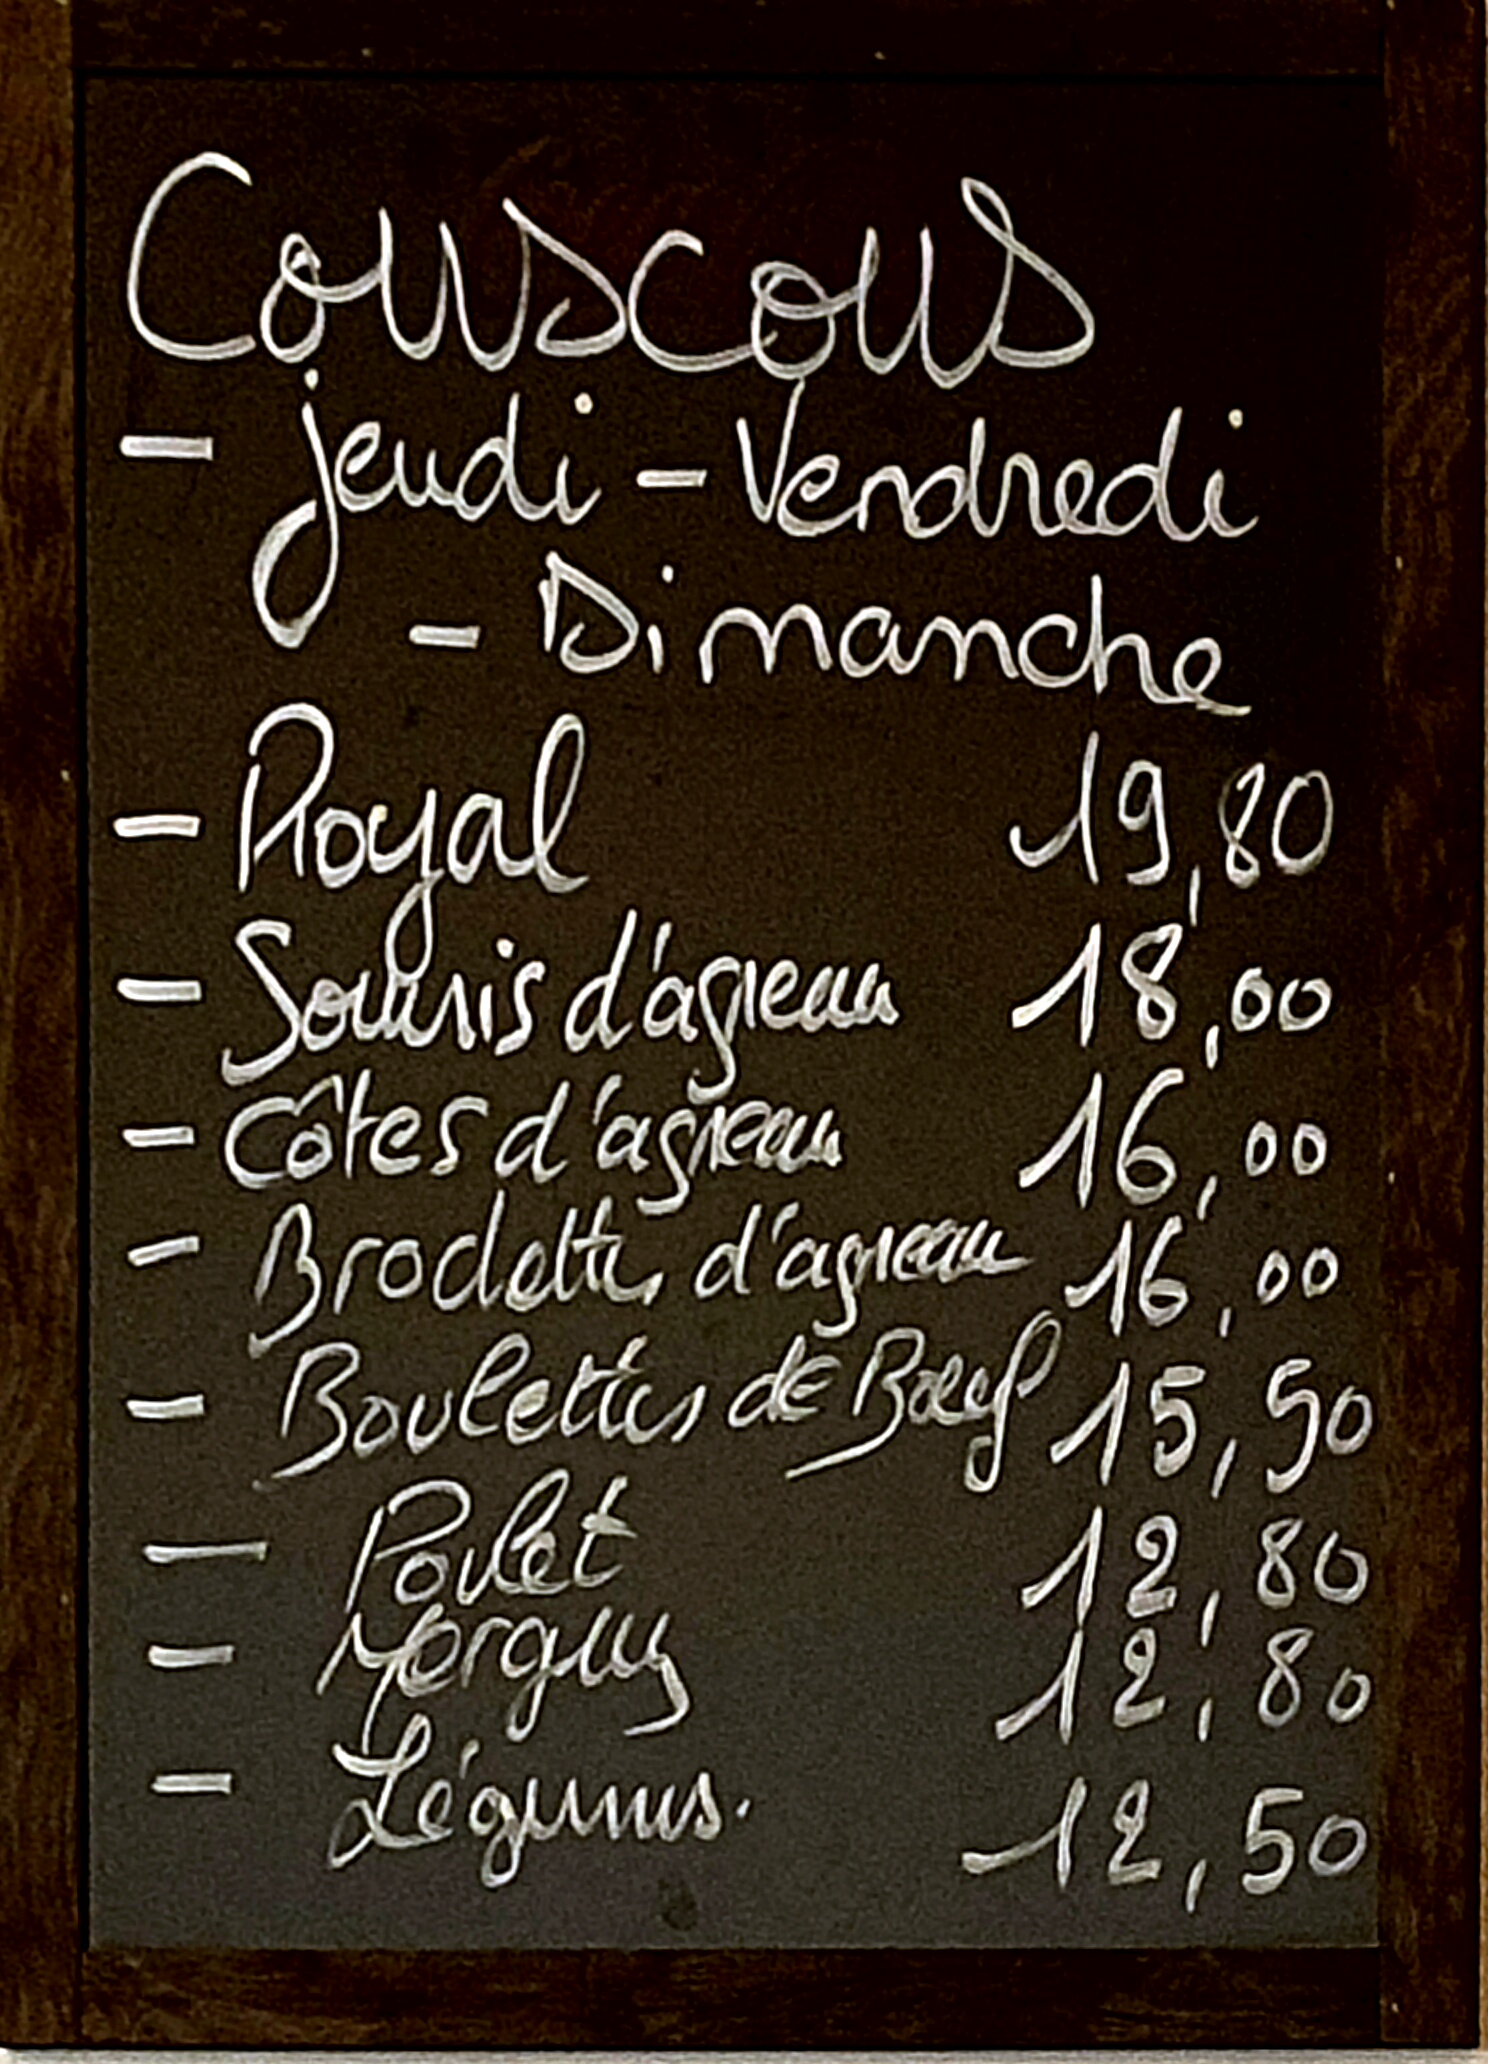 Couscous
- jeudi - Vendredi
- Dimanche
- Royal 19,80
- Souris d'agneau 18,00
- Côtes d'agneau 16,00
- Brochettes d'agneau 16,00
- Boulettes de Boeuf 15,50
- Poulet 12,80
- Merguez 12,80
- Légumes. 12,50